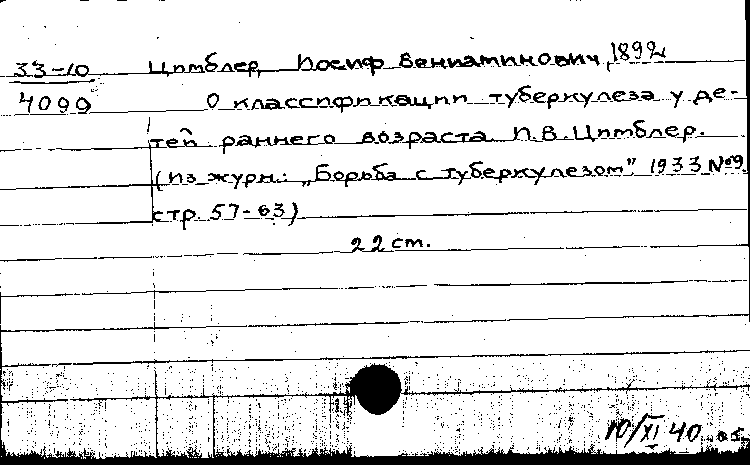 33-10 Цимблер, Иосиф Вениаминович, 1892
4099 О классификации туберкулеза у де-
тей раннего возраста И.В. Цимблер.
(из журн.: „Борьба с туберкулезом" 1933 №9
стр. 57-63)
22 cm.
10/XI 40